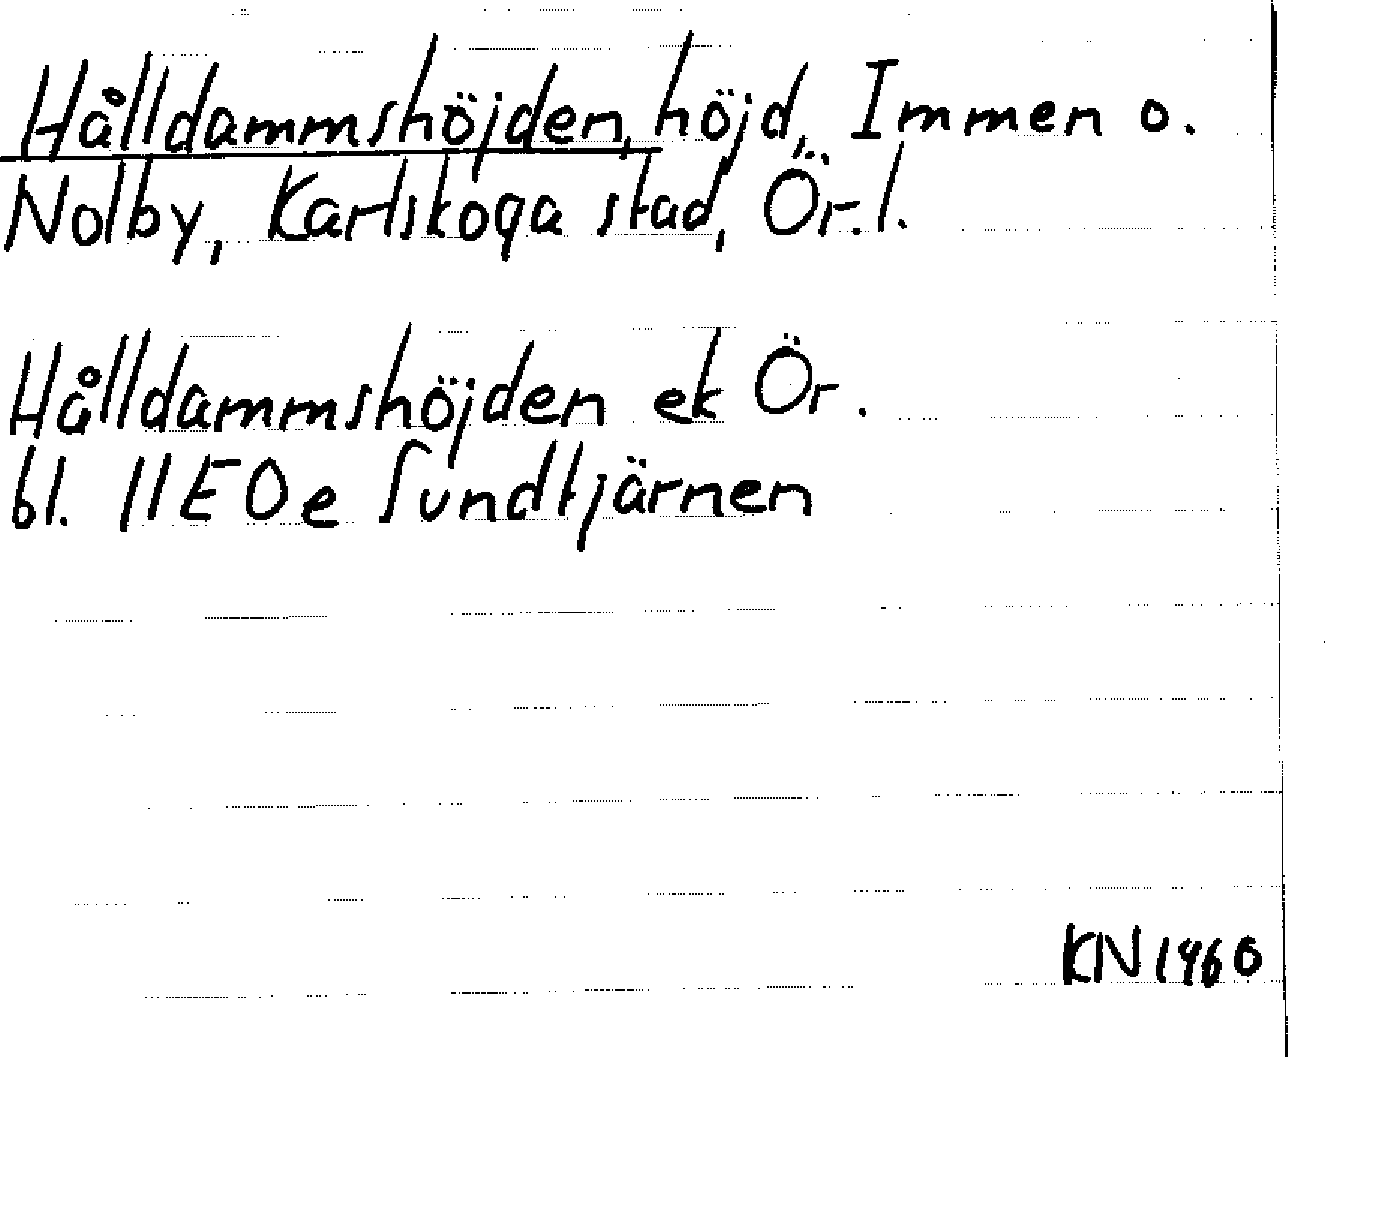 Hålldammshöjden, höjd, Immen o.
Nolby, Karlskoga stad, Ör. l.
Hålldammshöjden ek Ör.
bl. 11E0e Sundtjärnen
KN 1960